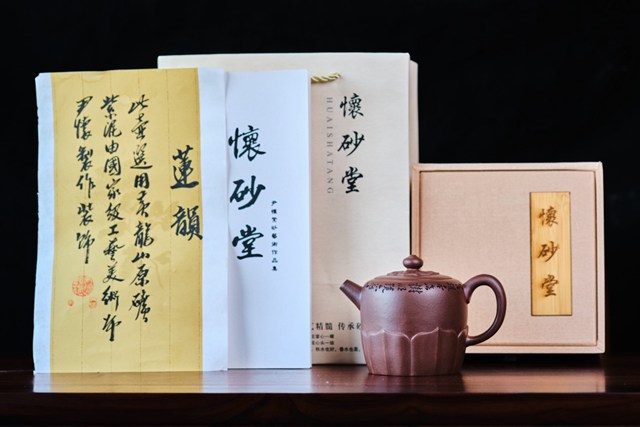 蓮韻
此壺選用黃龍山原礦
紫泥由國家級工藝美術師
尹懷製作裝飾
懷砂堂
尹懷紫砂藝術作品集
懷砂堂
HUAISHATANG
精髓 傳承
懷砂堂